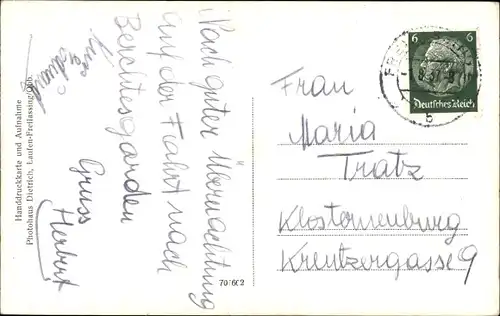 Nach guter Übernachtung
auf der Fahrt nach
Berchtesgarden
Gruss
Herbert
Handdruckkarte und Aufnahme
Photohaus Dietrich, Laufen-Freilassing/Obb.
707602
6 6
Deutsches Reich
b
Frau
Maria
Tratz
Klosterneuburg
Kreutzergasse 9